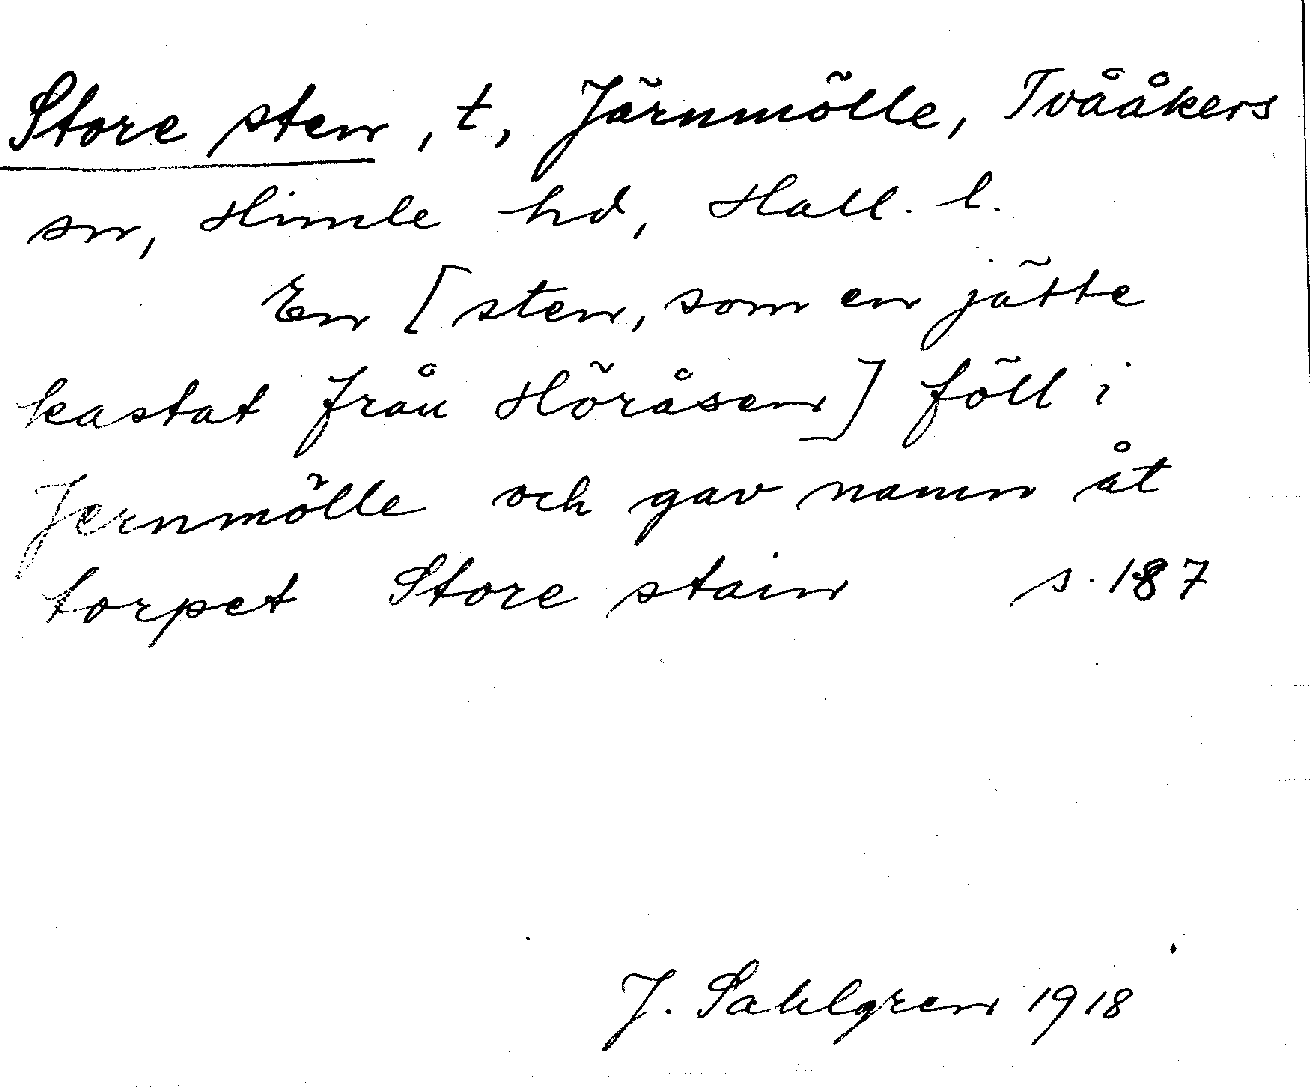 Store sten, t, Järnmölle, Tvååkers
sn, Himle hd, Hall. l.
En [sten, som en jätte
kastat från Höråsen] föll i
Jernmölle och gav namn åt
torpet Store stain s. 187
J. Sahlgren 1918